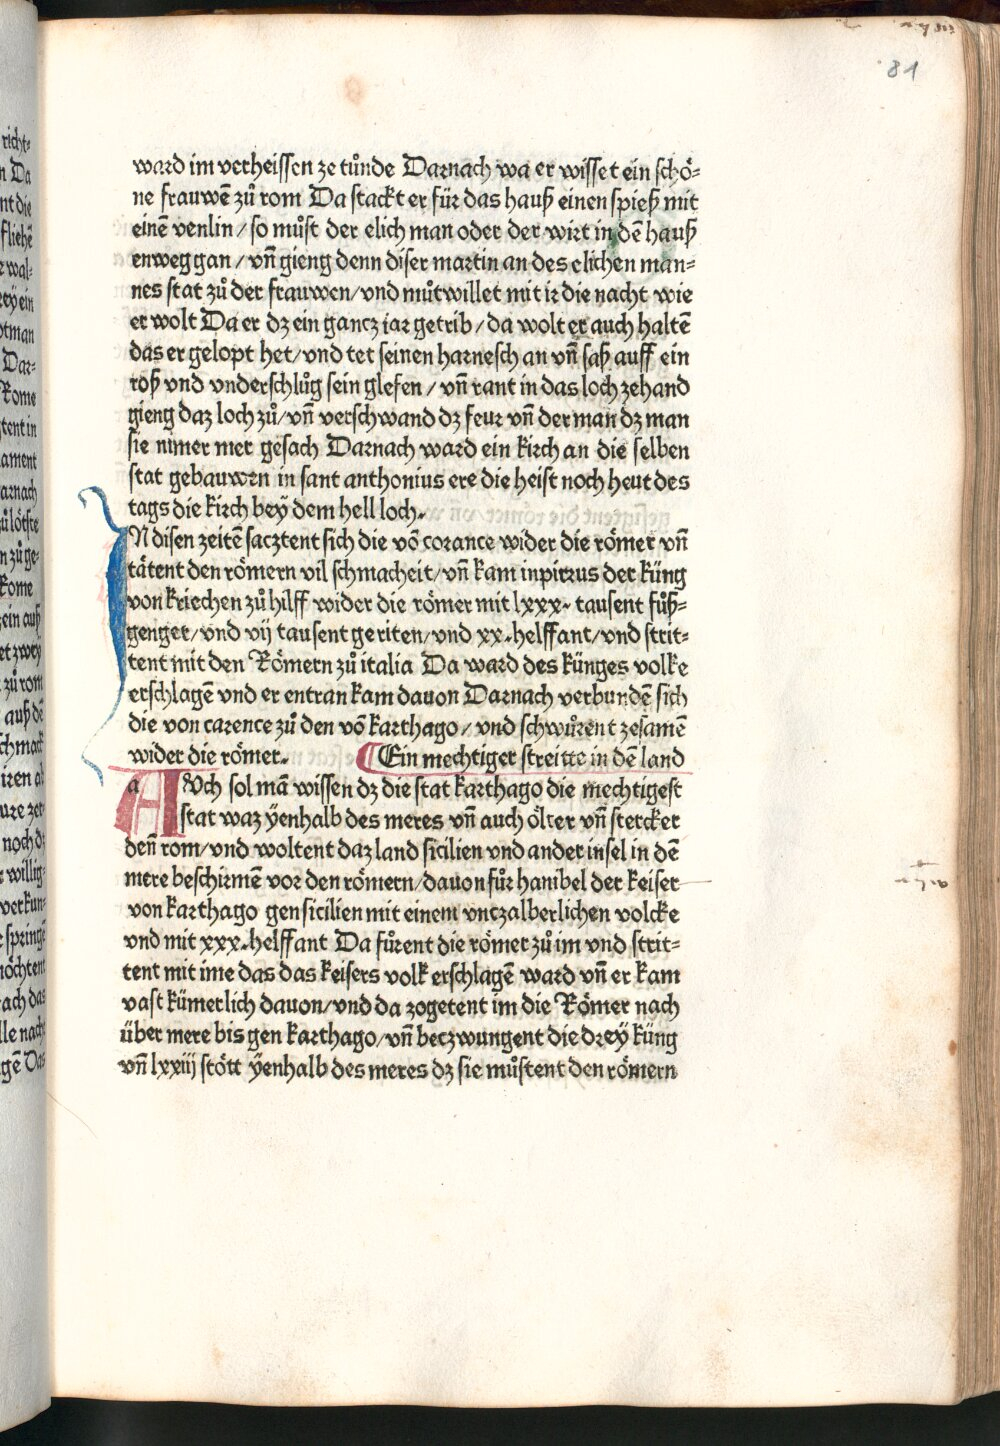 81
ward im verheissen ze tůnde Darnach wa er wisset ein schö-
ne frauwē zů rom Da stackt er für das hauß einen spieß mit
einē venlin / so můst der elich man oder der wirt in dē hauß
enweg gan / vñ gieng denn diser martin an des elichen man-
nes stat zů der frauwen / vnd můtwillet mit ir die nacht wie
er wolt Da er dz ein gancz iar getrib / da wolt er auch haltē
das er gelopt het / vnd tet seinen harnesch an vñ saß auff ein
roß vnd vnderschlůg sein glefen / vñ rant in das loch zehand
gieng daz loch zů / vñ verschwand dz feur vñ der man dz man
sie nimer mer gesach Darnach ward ein kirch an die selben
stat gebauwen in sant anthonius ere die heist noch heut des
tags die kirch beÿ dem hell loch.
IN disen zeitē sacztent sich die vō corance wider die römer vñ
tätent den römern vil schmacheit / vñ kam inpirrus der küng
von kriechen zů hilff wider die römer mit lxxx. tausent fůß-
genger / vnd vij tausent geriten / vnd xx. helffant / vnd strit-
tent mit den Römern zů italia Da ward des künges volke
erschlagē vnd er entran kam dauon Darnach verbundē sich
die von carence zů den vō karthago / vnd schwůrent zesamē
wider die römer. Ein mechtiger streitte in dē land
AVch sol mā wissen dz die stat karthago die mechtigest
stat waz ÿenhalb des meres vñ auch ölter vñ stercker
deñ rom / vnd woltent daz land sicilien vnd ander insel in dē
mere beschirmē vor den römern / dauon fůr hanibel der keiser
von karthago gen sicilien mit einem vnczalberlichen volcke
vnd mit xxx. helffant Da fůrent die römer zů im vnd strit-
tent mit ime das das keisers volk erschlagē ward vñ er kam
vast kümerlich dauon / vnd da zogetent im die Römer nach
über mere bis gen karthago / vñ beczwungent die dreÿ küng
vñ lxxiij stött ÿenhalb des meres dz sie můstent den römern